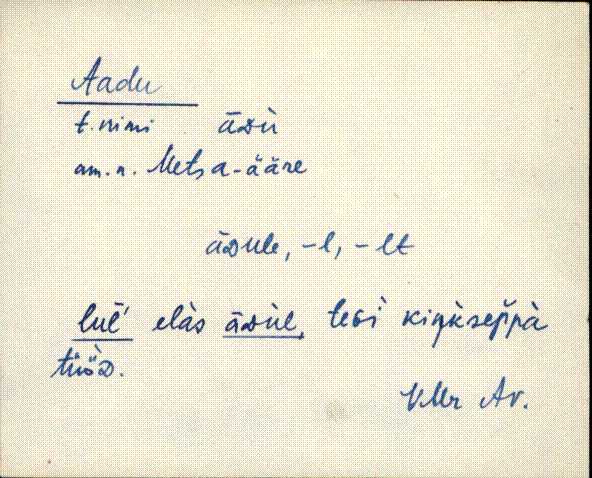 Aadu
t. nimi āᴅù
am. n. Metsa-ääre
āᴅule, -l, -lt
elàs āᴅùl, teǥì kiŋ̀ksep̆pà
tüö̀ᴅ.
VMr Av.